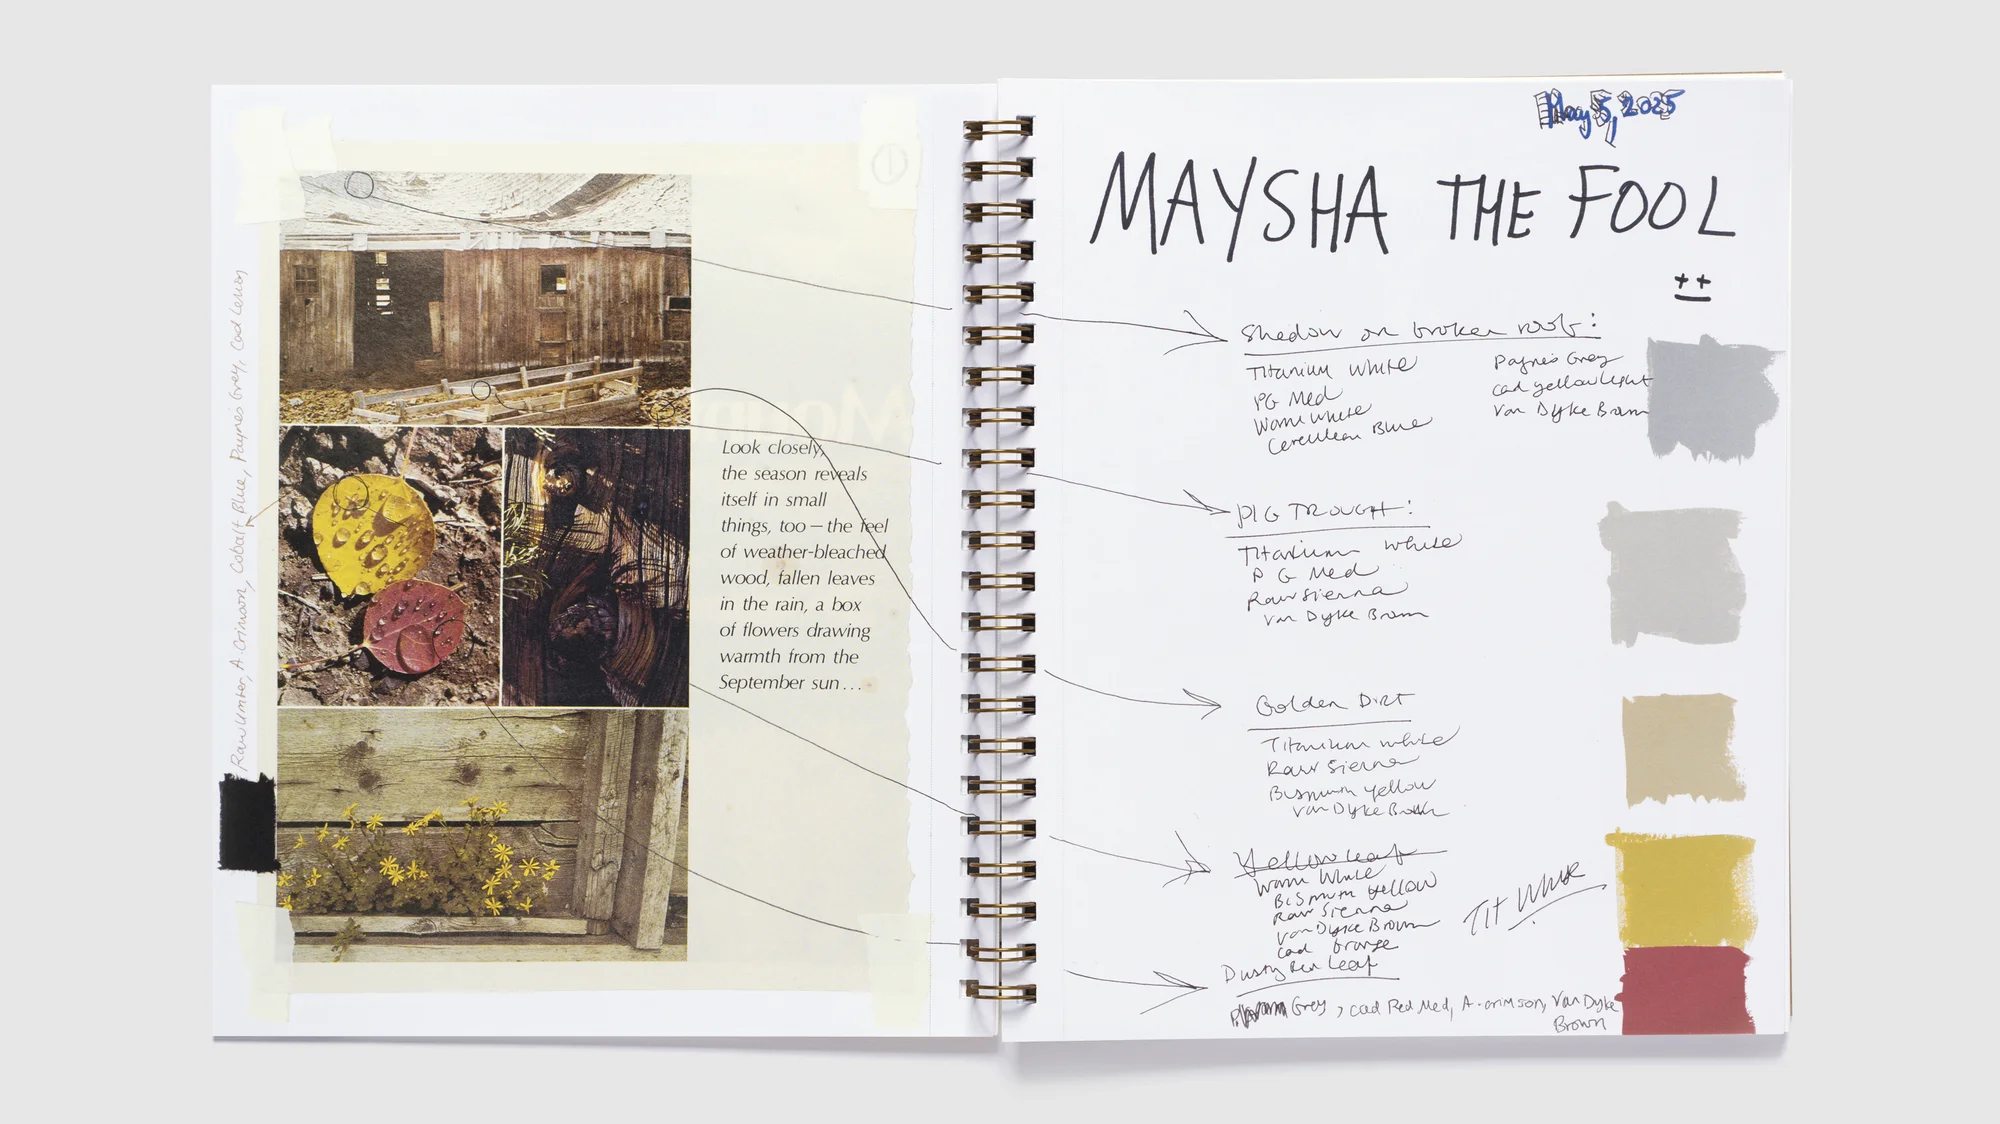 Raw Umber, A. Crimson, Cobalt Blue, Payne's Grey, Cad Lemon
1
Look closely,
the season reveals
itself in small
things, too — the feel
of weather-bleached
wood, fallen leaves
in the rain, a box
of flowers drawing
warmth from the
September sun...
May 5, 2025
MAYSHA THE FOOL
Shadow on broken roof:
Titanium White
PG Med
Warm White
Cerulean Blue
Payne's Grey
Cad yellow light
Van Dyke Brown
PIG TROUGH:
Titanium White
PG Med
Raw Sienna
Van Dyke Brown
Golden Dirt
Titanium White
Raw Sienna
Bismuth Yellow
Van Dyke Brown
Yellow leaf
Warm White
Bismuth Yellow
Raw Sienna
Van Dyke Brown
Cad Orange
Tit White
Dusty Red Leaf
Grey, Cad Red Med, A. crimson, Van Dyke
Brown